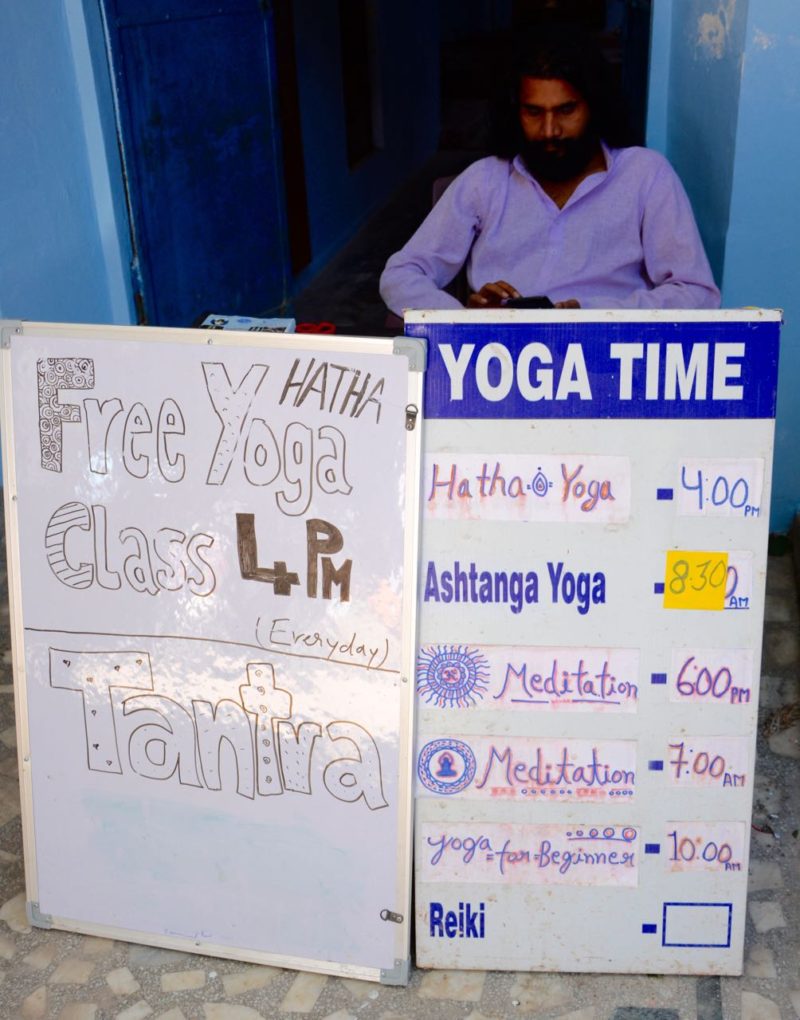 Free Yoga HATHA
Class 4 PM
(Everyday)
Tantra
YOGA TIME
Hatha Yoga - 4:00 PM
Ashtanga Yoga - 8:30 AM
Meditation - 6:00 PM
Meditation - 7:00 AM
yoga = for = Beginner - 10:00 AM
Reiki -